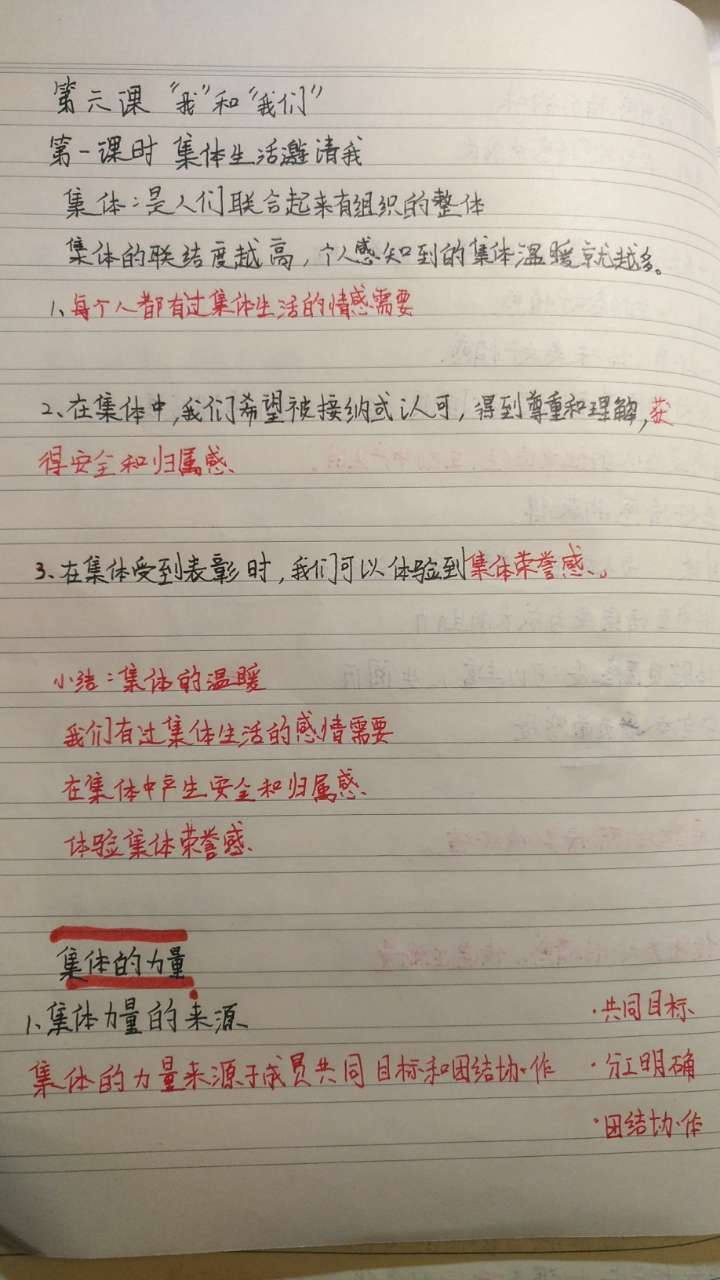 第六课 “我”和“我们”
第一课时 集体生活邀请我
集体：是人们联合起来有组织的整体
集体的联结度越高，个人感知到的集体温暖就越多。
1、每个人都有过集体生活的情感需要
2、在集体中，我们希望被接纳或认可，得到尊重和理解，获
得安全和归属感、
3、在集体受到表彰时，我们可以体验到集体荣誉感、。
小结：集体的温暖
我们有过集体生活的感情需要
在集体中产生安全和归属感、
体验集体荣誉感、
集体的力量
1、集体力量的来源、
·共同目标
集体的力量来源于成员共同目标和团结协作
·分工明确
·团结协作